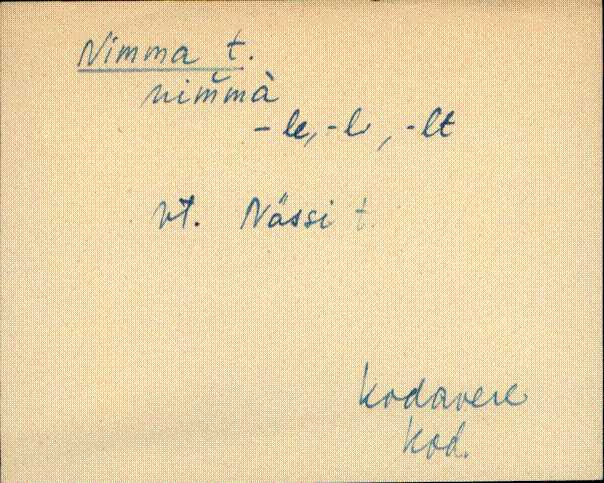 Nimma t.
nim̆mà
-le, -l, -lt
vt. Nässi t.
Kodavere
Kod.